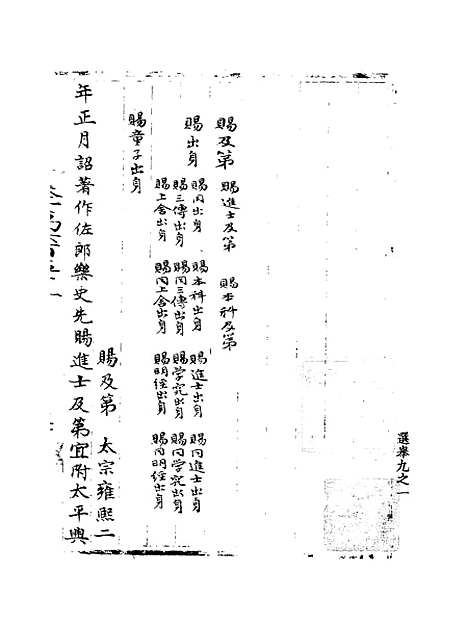 選舉九之一
賜及第 賜進士及第 賜本科及第
賜出身 賜同出身 賜本科出身 賜進士出身 賜同進士出身
賜三傳出身 賜同三傳出身 賜学究出身 賜同学究出身
賜上舍出身 賜同上舍出身 賜明經出身 賜同明經出身
賜童子出身
賜及第 太宗雍熙二
年正月詔著作佐郎樂史先賜進士及第宜附太平興